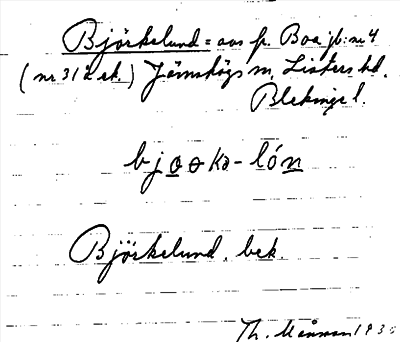 Björkelund = avs fr. Boa jb: nr 4
(nr 312 ek.) Jämshögs sn, Listers hd.
Blekinge l.
bjɷɵkə-lón
Björkelund, bek.
Th. 193